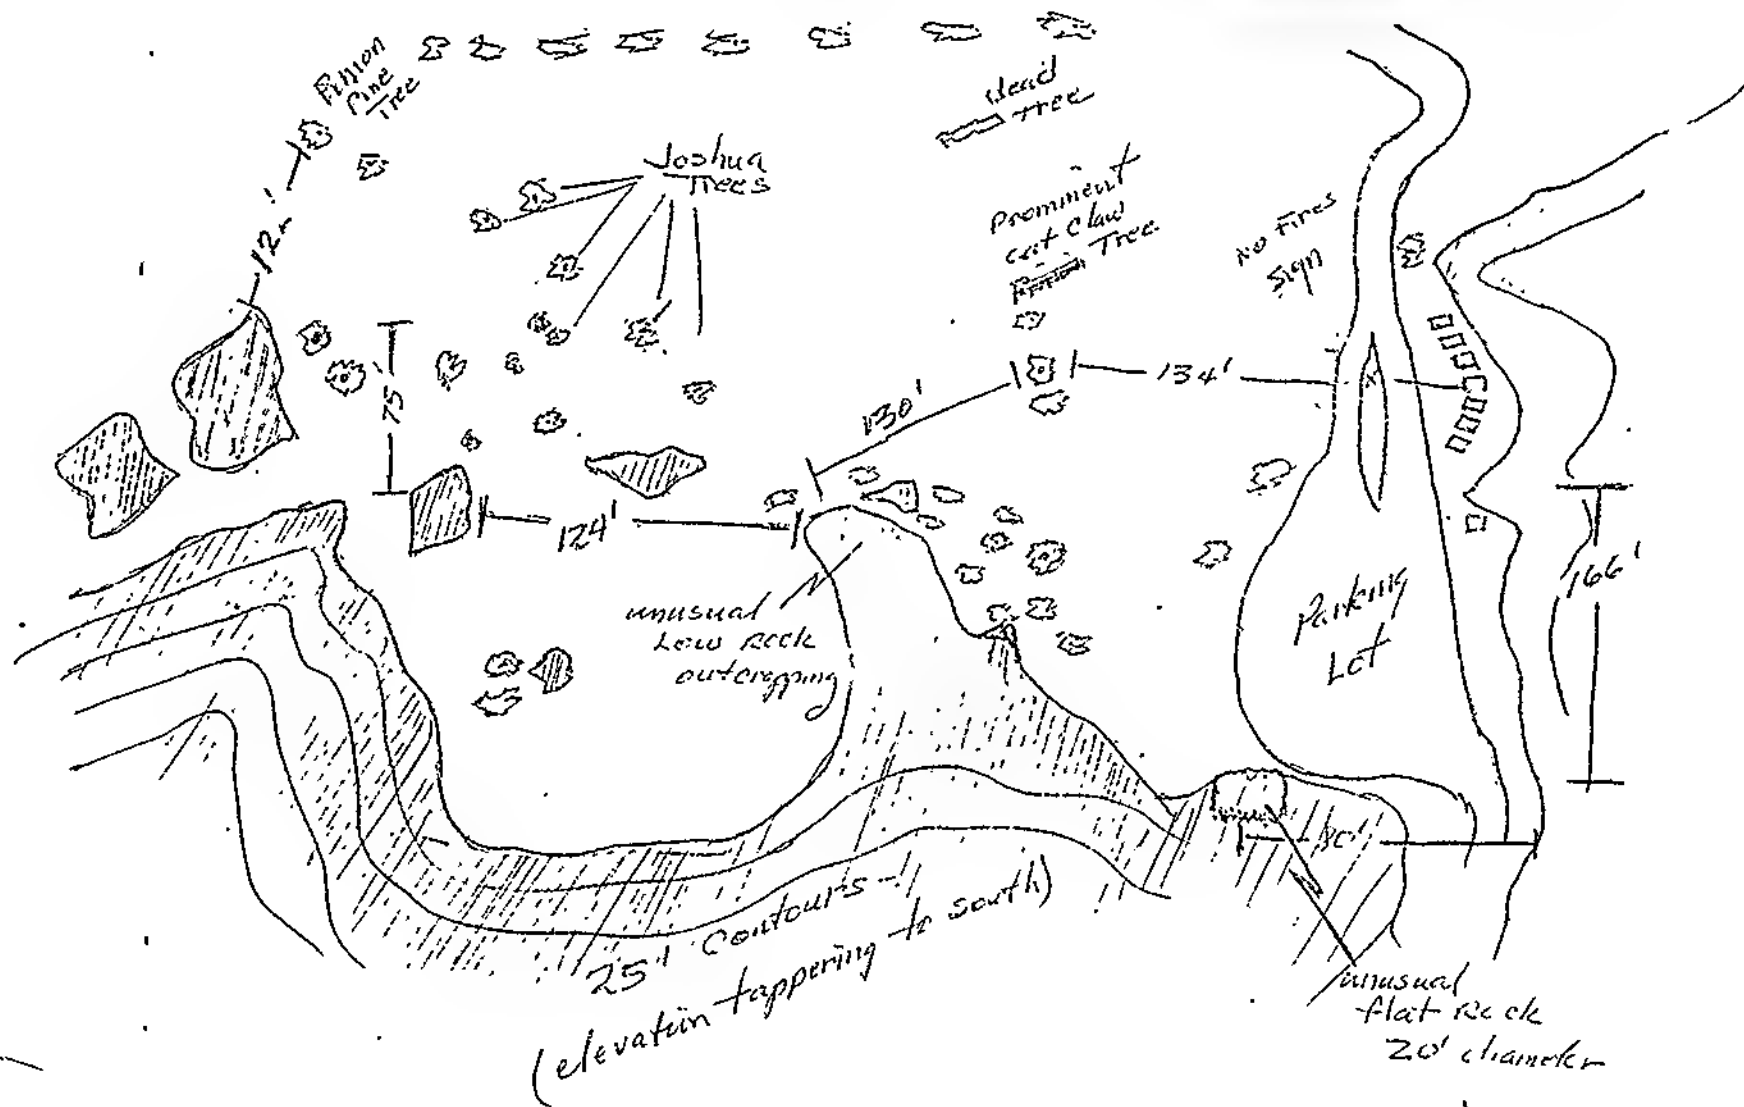 Pinion
Pine
Tree
Dead
Tree
Joshua
Trees
Prominent
cat claw
Tree
No Fires
Sign
12'
75'
130'
134'
124'
166'
unusual
Low Rock
outcropping
Parking
Lot
80'
25' Contours -
(elevation tappering to south)
unusual
flat Rock
20' diameter